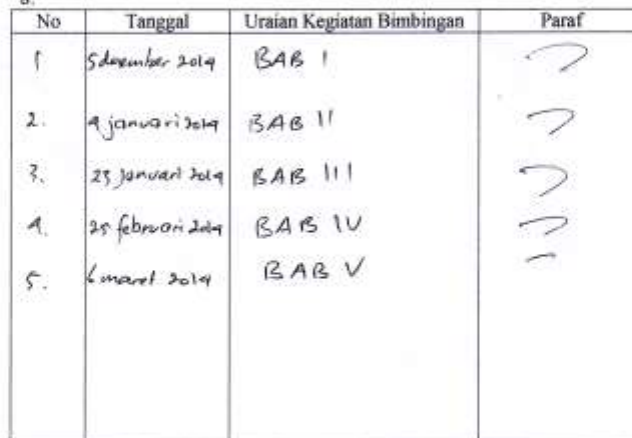 No Tanggal Uraian Kegiatan Bimbingan Paraf
1 5 desember 2019 BAB I
2. 9 januari 2019 BAB II
3. 23 januari 2019 BAB III
4. 25 februari 2019 BAB IV
5. 6 maret 2019 BAB V